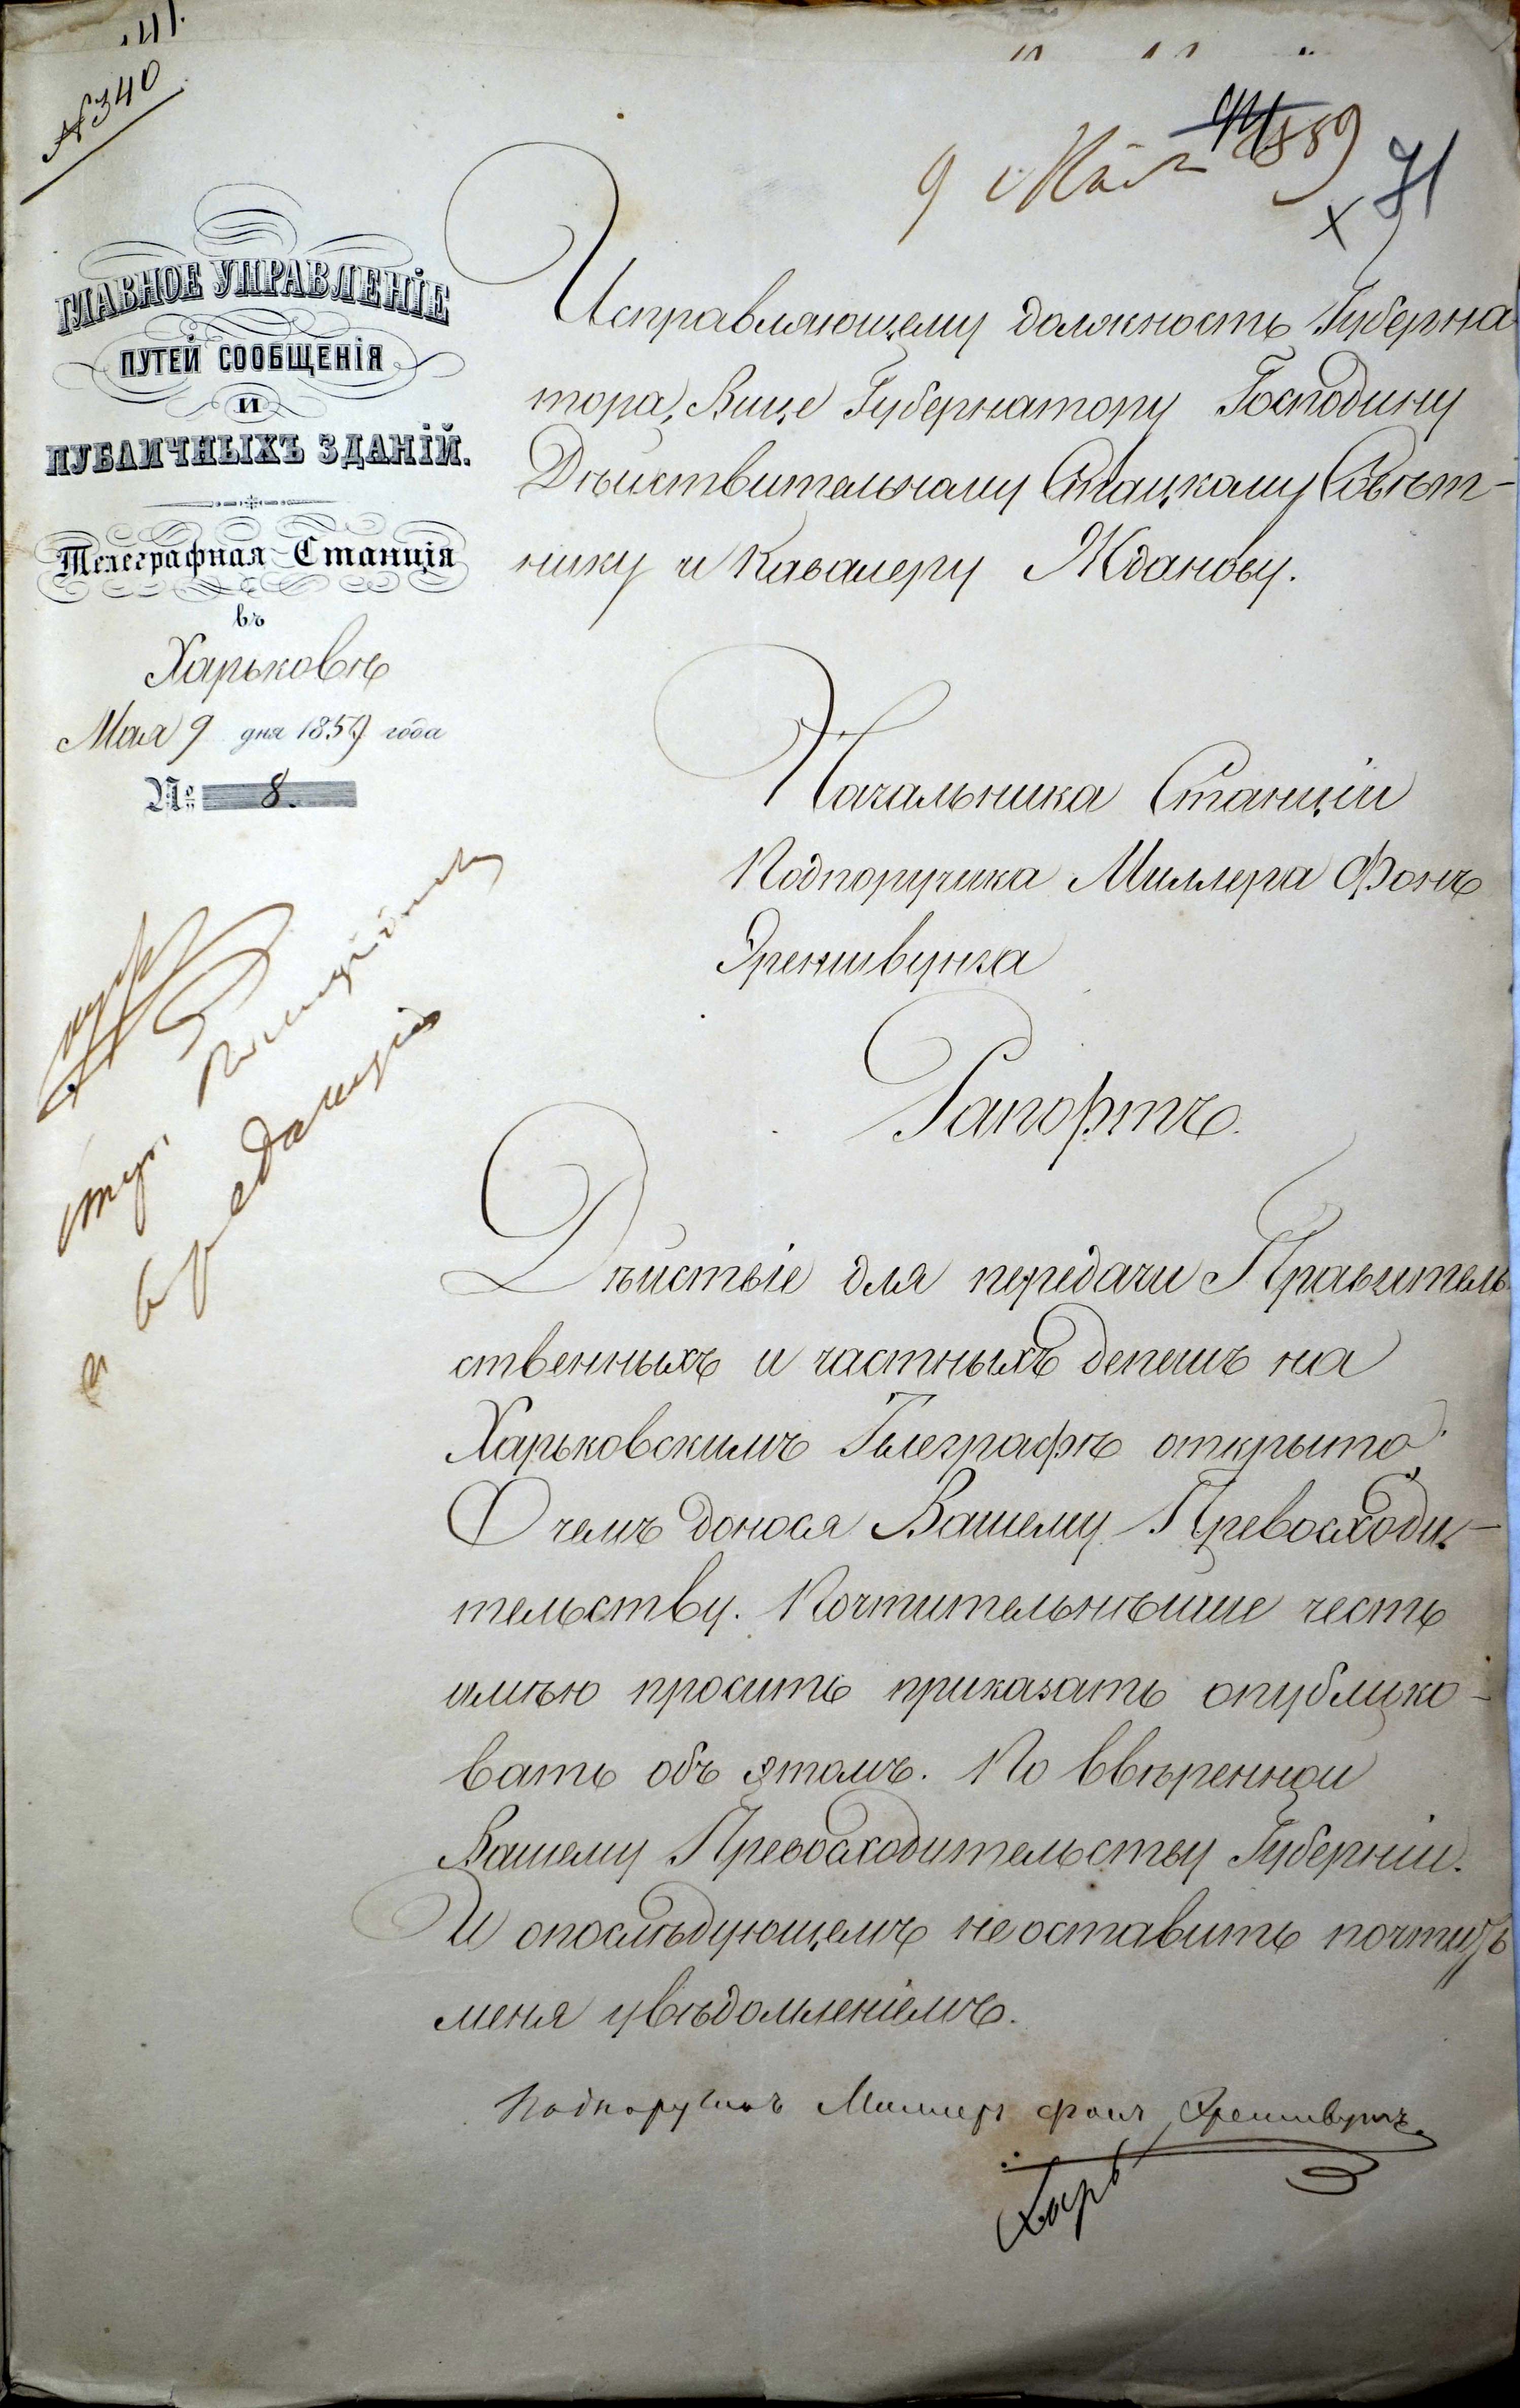 № 340
41
9 Мая 1859
71
ГЛАВНОЕ УПРАВЛЕНІЕ
ПУТЕЙ СООБЩЕНІЯ
И
ПУБЛИЧНЫХЪ ЗДАНІЙ.
Телеграфная Станція
въ
Харьковѣ
Мая 9 дня 1859 года
№ 8.
Исправляющему должность Губерна
тора, Вице Губернатору Господину
Дѣйствительному Статскому Совѣт-
нику и Кавалеру Жданову.
Начальника Станціи
Подпоручика Миллера Фонъ
Эреншвунга
Рапортъ.
Дѣйстіе для передачи Правитель
ственныхъ и частныхъ депешъ на
Харьковскимъ Телеграфѣ открыто
О чемъ донося Вашему Превосходи-
тельству. Почтительнѣише честь
имѣю просить приказать опублико-
вать объ этомъ. По ввѣренной
Вашему Превосходительству Губерніи.
И опослѣдующемъ не оставить почтить
меня увѣдомленіемъ.
Подпоручикъ Миллеръ фонъ Эреншвунгъ
Харь
въ редакцію